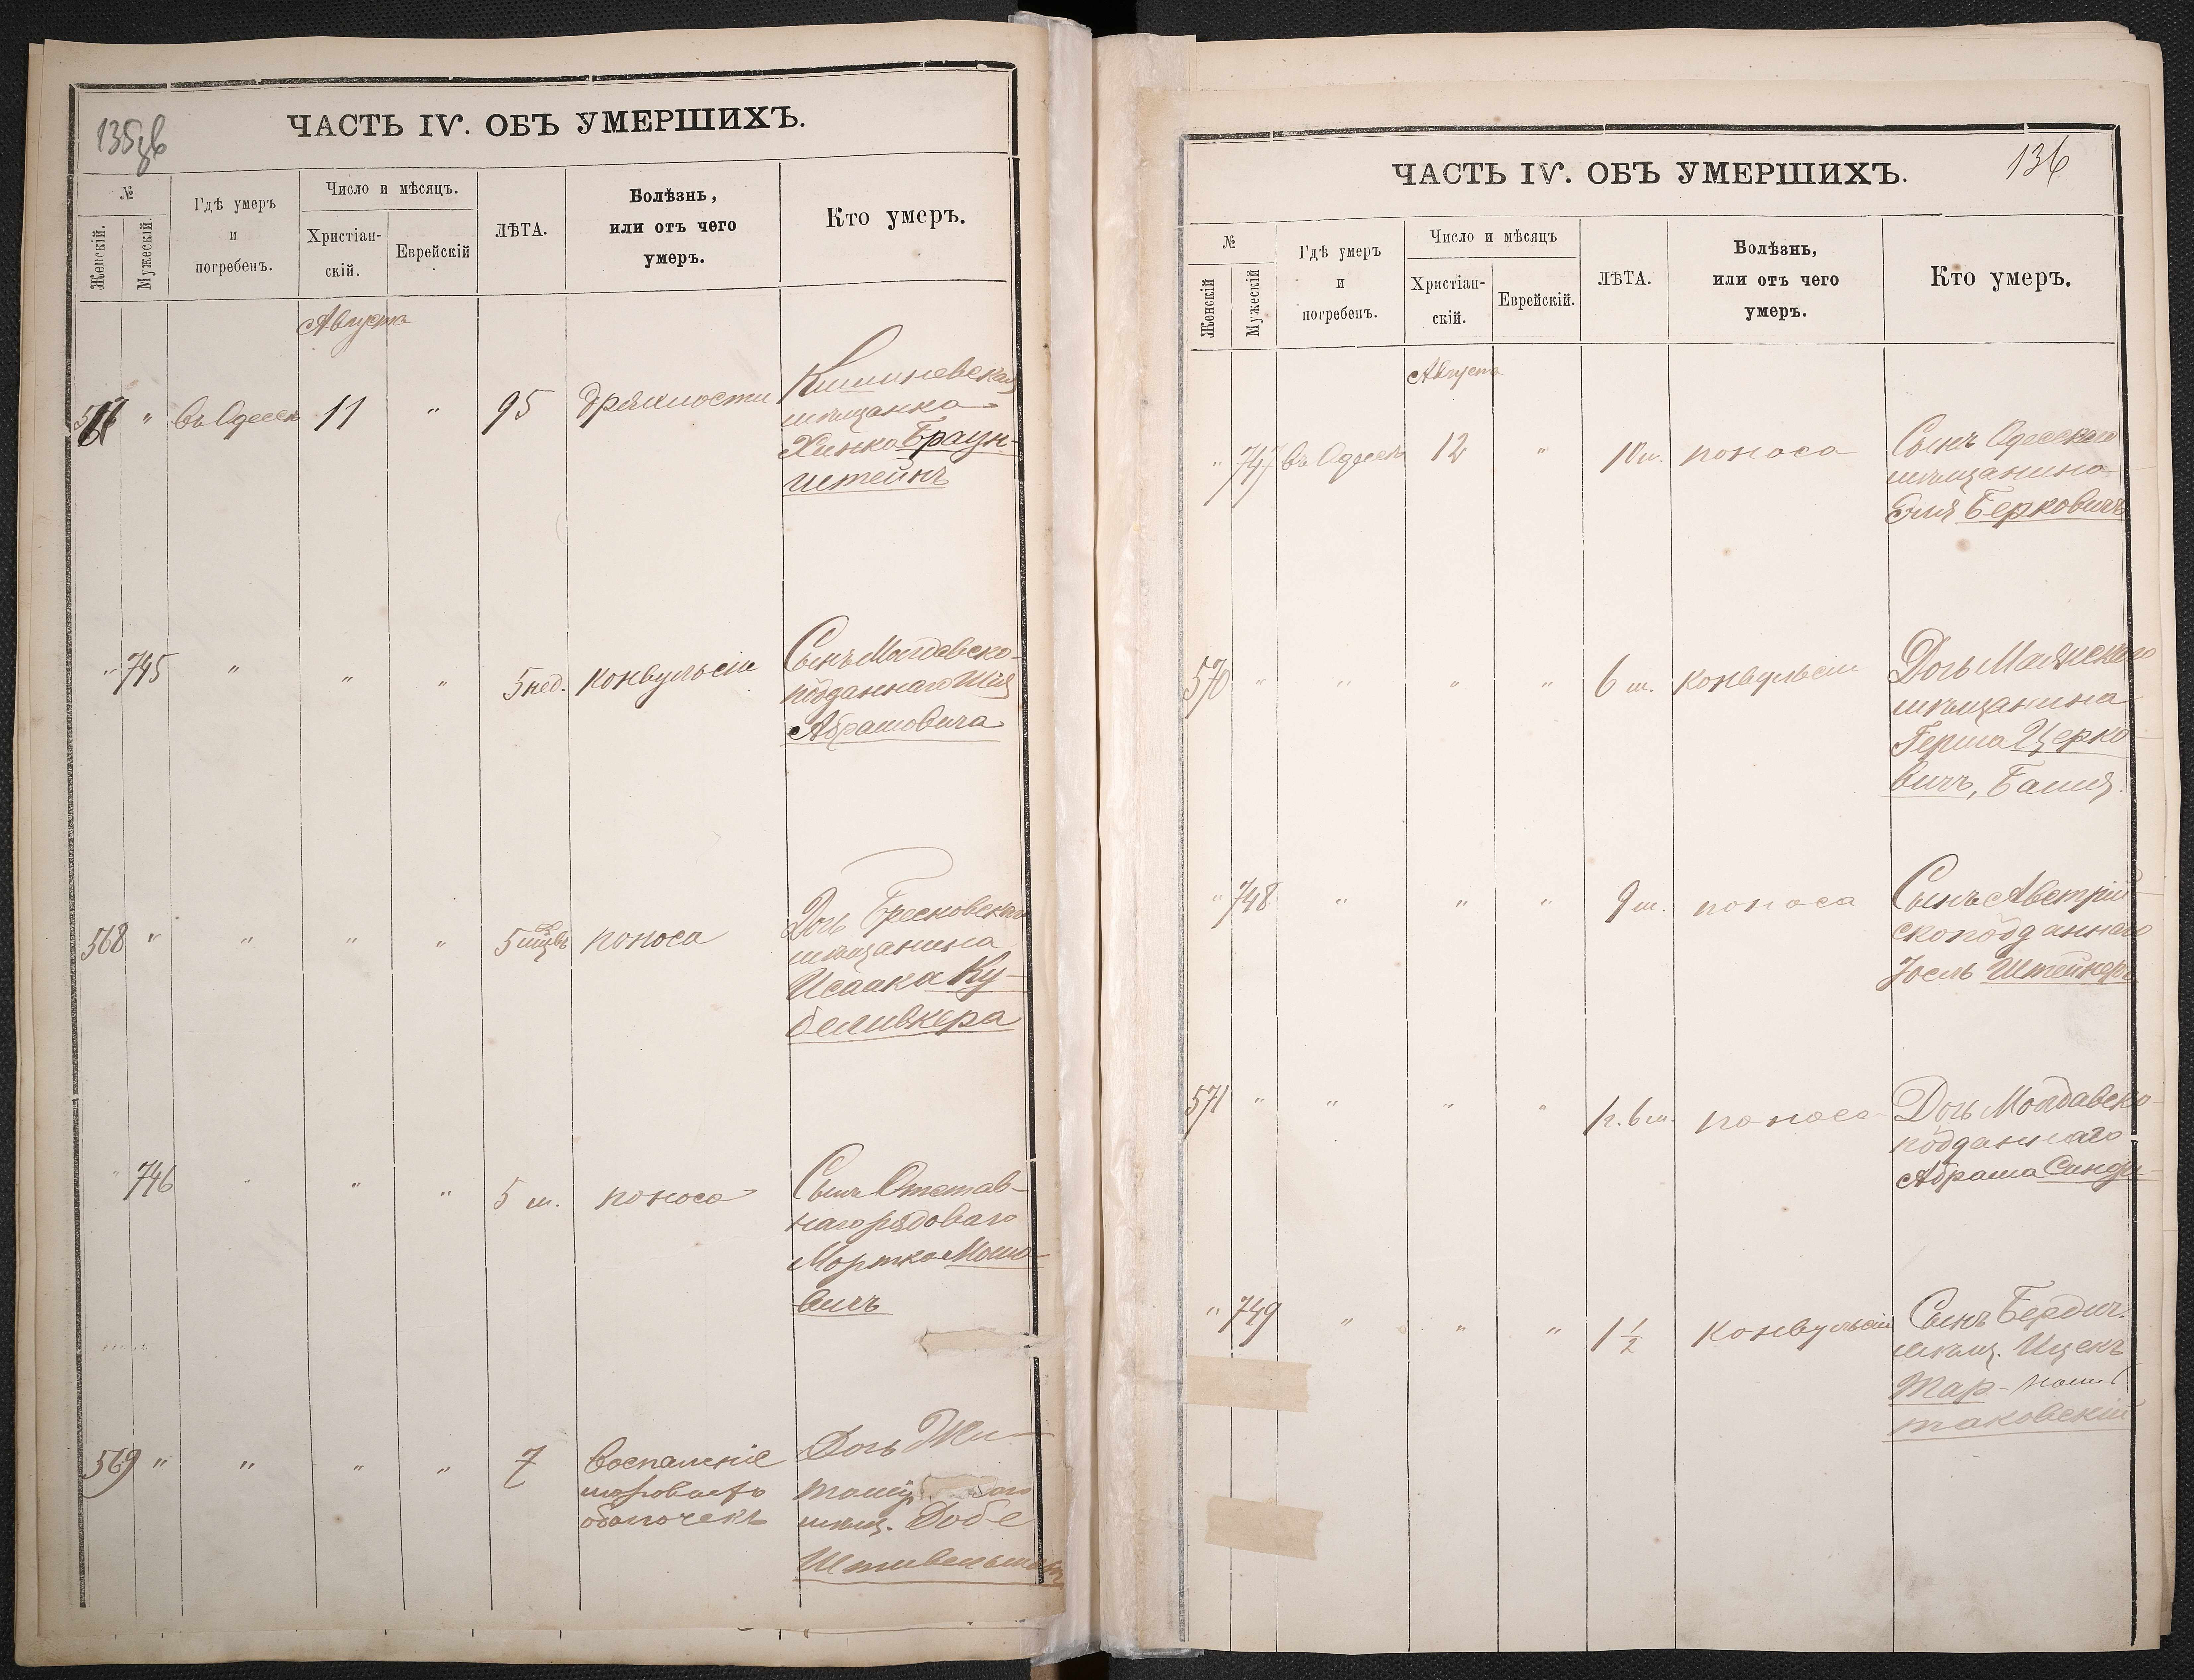 135об
ЧАСТЬ IV. ОБЪ УМЕРШИХЪ.
№
Женскій.
Мужескій.
Гдѣ умеръ
и
погребенъ.
Число и мѣсяцъ.
Христіан-
скій.
Еврейскій
ЛѢТА.
Болѣзнь,
или отъ чего
умеръ.
Кто умеръ.
Августа
567 " въ Одессѣ 11 " 95 дряхлости Кишиневская
мѣщанка
Хинка Браун-
штейнъ
" 745 " " " 5 нед. конвульсіи Сынъ Молдавско-
подданнаго Шая
Абрамовича
568 " " " " 5 поноса Дочь
мѣщанина
Исаака Ку-
беливкера
" 746 " " " 5 м. поноса Сынъ Отстав-
наго рядоваго
Мортко Моше-
вичъ
569 " " " " 7 Воспаленіе Дочь Жи-
мозговыхъ
оболочекъ мѣщ. Добе
Штивельманъ
136
ЧАСТЬ IV. ОБЪ УМЕРШИХЪ.
№
Женскій
Мужескій
Гдѣ умеръ
и
погребенъ.
Число и мѣсяцъ
Христіан-
скій.
Еврейскій.
ЛѢТА.
Болѣзнь,
или отъ чего
умеръ.
Кто умеръ.
Августа
" 747 въ Одессѣ 12 " 10 м. поноса Сынъ Одесскаго
мѣщанина
Эля Берковичъ
570 " " " " 6 м. конвульсіи Дочь Маякскаго
мѣщанина
Герша Церко-
вичъ,
" 748 " " " 9 м. поноса Сынъ Австрій-
скоподданнаго
Іосль Штейнеръ
571 " " " " 1 г. 6 м. поноса Дочь Молдавско-
подданнаго
Абрама
" 749 " " " 1 1/2 конвульсіи Сынъ Бердич.
мѣщ. Ицекъ
Тар-
таковскій